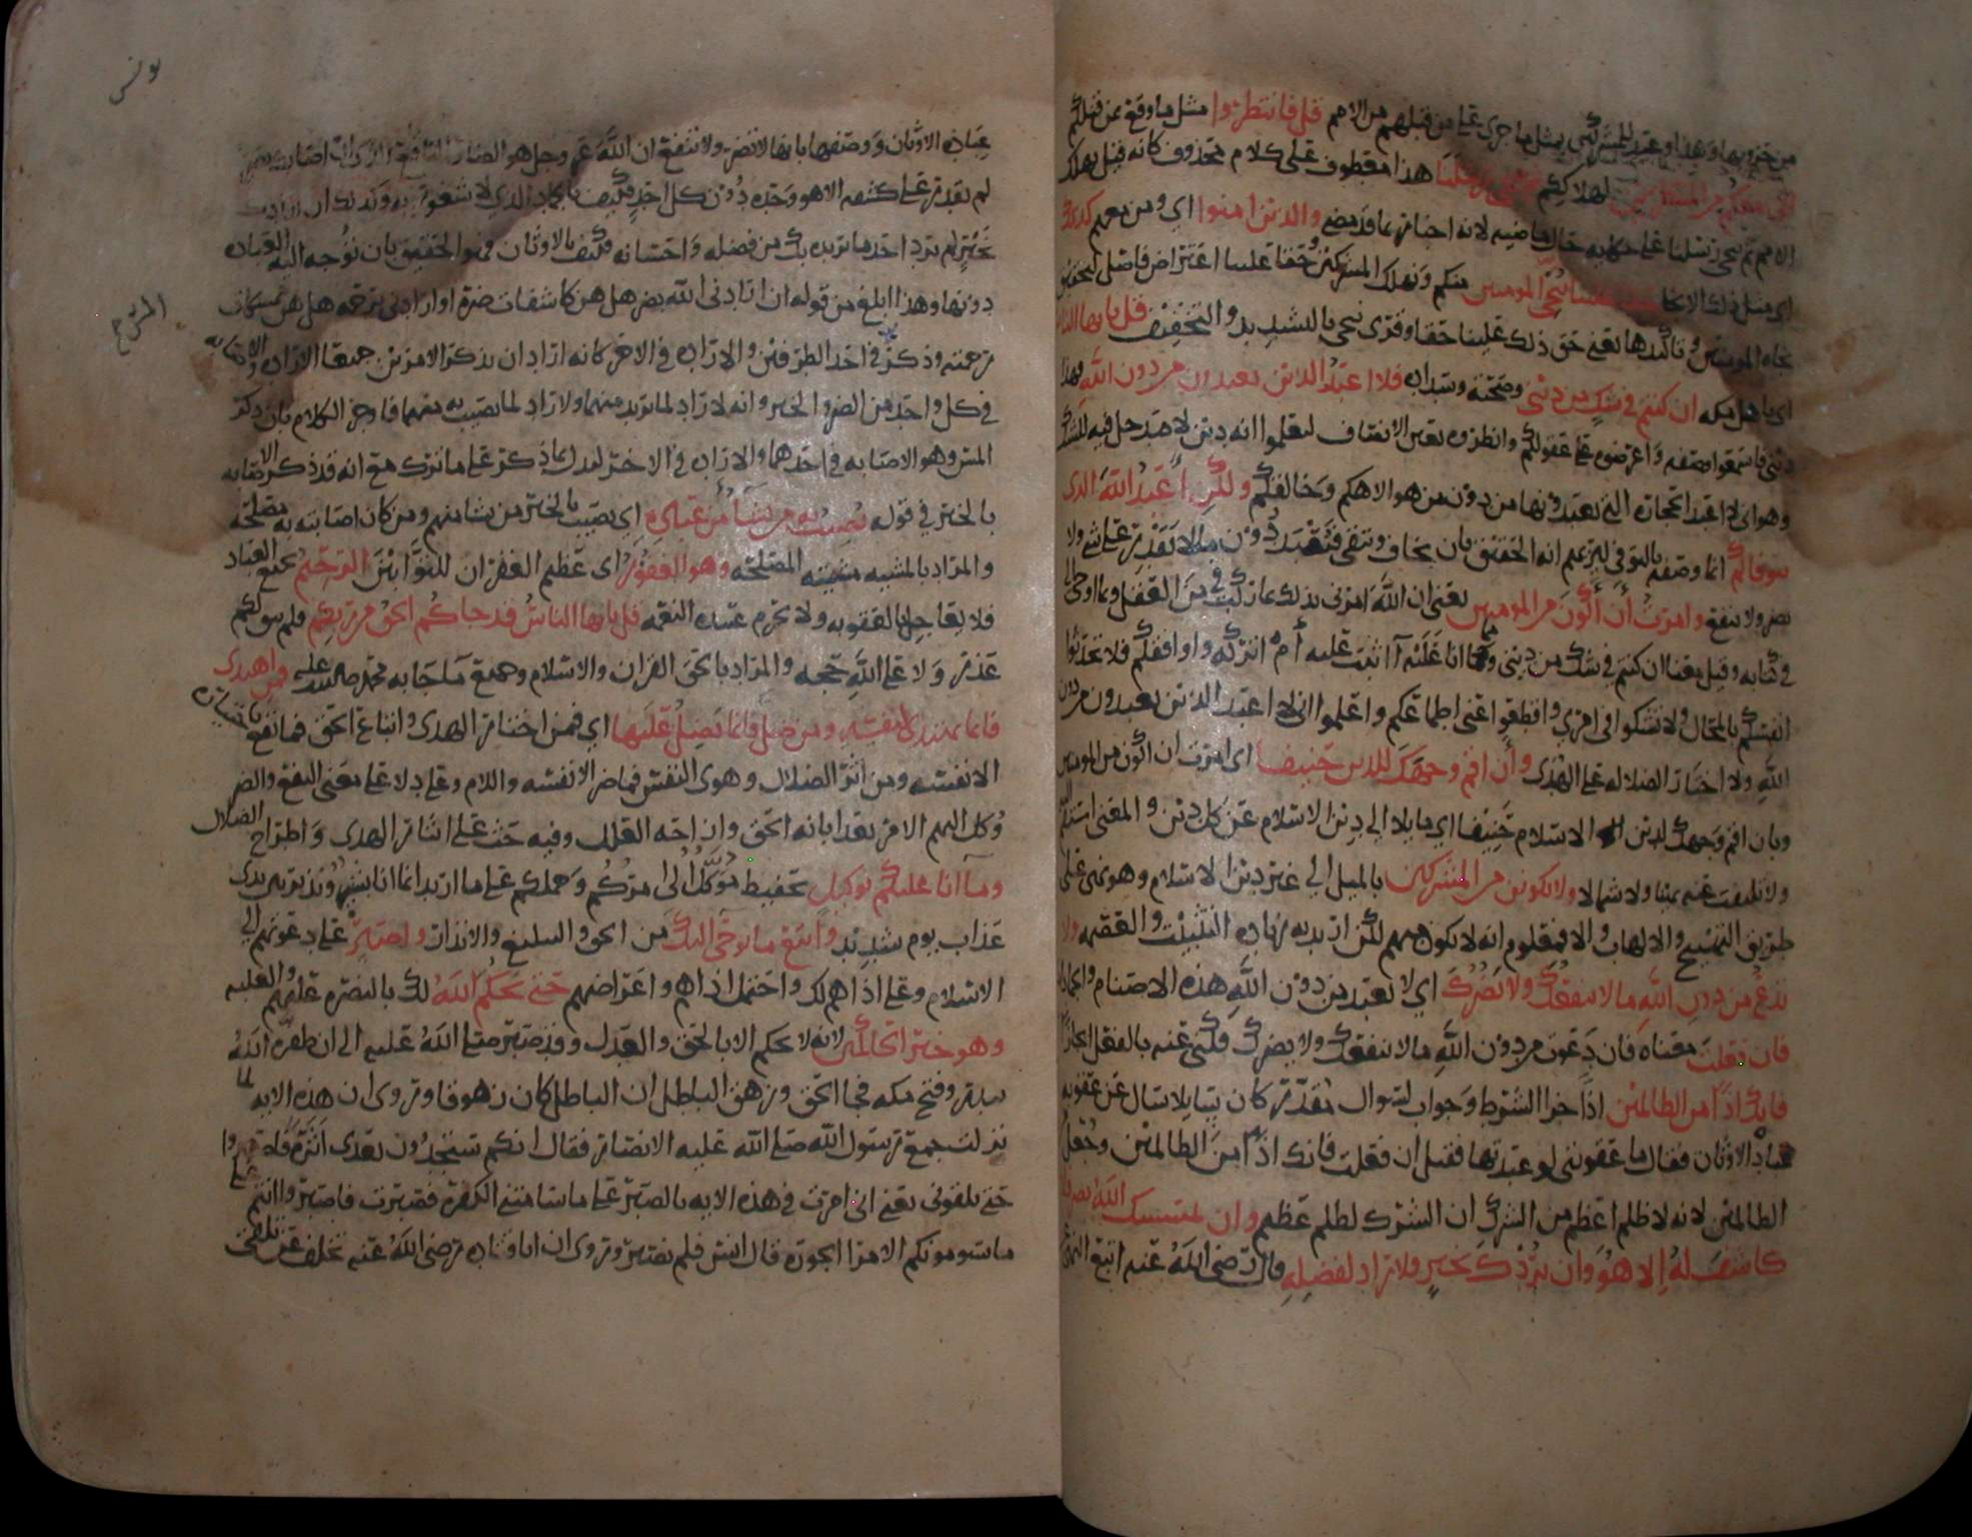 من حربهم وهذا وعيد للمشركين بمثل ما جرى على من قبلهم من الامم قل فانتظروا مثل ما وقع بمن قبلكم
اني معكم من المنتظرين لهلاككم ثم ننجي رسلنا هذا معطوف على كلام محذوف كانه قيل نهلك
الامم ثم ننجي رسلنا على حكايه حال ماضيه لانه اخبار عما قد مضى والدين امنوا اي ومن معهم كذلك
اي مثل ذلك الانجا حقا علينا ننجي المومنين منكم ونهلك المشركين وحقا علينا اعتراض فاصل لتحقيق
نجاه المومنين وتاكيدها يعني حق ذلك علينا حقا وقرى ننجي بالتشديد والتخفيف قل يا ايها الناس
اي يا اهل مكه ان كنتم في شك من ديني وصحته وسداده فلا اعبد الدين تعبدون من دون الله فهذا
ديني فاسمعوا وصفه واعرضوه على عقولكم وانظروه بعين الانصاف لتعلموا انه دين لا مدخل فيه للشك
وهو اني لا اعبد الحجاره التي تعبدونها من دون من هو الاهكم وخالقكم ولكن اعبد الله الدى
يتوفاكم انما وصفه بالتوفي ليريهم انه الحقيق بان يخاف ويتقى فيعبد دون ما لا يقدر على شي ولا
يضر ولا ينفع وامرت أن أكون من المومنين يعني ان الله امرني بذلك بما ركب في من العقل وبما اوحى الي
في كتابه وقيل معنا ان كنتم في شك من ديني ومما انا عليه أاثبت عليه أم اتركه واوافقكم فلا تحدثوا
انفسكم بالمحال ولا تشكوا في امري واقطعوا عني اطماعكم واعلموا اني لا اعبد الدين تعبدون من دون
الله ولا اختار الضلاله على الهدى وأن اقم وجهك للدين حنيفا اى امرت ان اكون من المومنين
وبان اقم وجهك لدين الاسلام حنيفا اي مايلا الي دين الاسلام عن كل دين والمعنى استقم
ولا تلتفت عنه يمينا ولا شمالا ولا تكونن من المشركين بالميل الي غير دين الاسلام وهو نهي على
طريق التهييج والالهاب والا فمعلوم انه لا يكون منهم لكن اريد به زياده التثبيت والعصمه ولا
تدع من دون الله ما لا ينفعك ولا يضرك اي لا تعبد من دون الله هذه الاصنام والجماد
فان فعلت معناه فان دعوت من دون الله ما لا ينفعك ولا يضرك فكنى عنه بالفعل ايجازا
فانك اذا من الظالمين اذا جزا الشرط وجواب لسوال مقدر كان سايلا سال عن عقوبه
عباد الاوثان فقال ما عقوبتي لو عبدتها فقيل ان فعلت فانك اذا من الظالمين وجعل من
الظالمين لانه لا ظلم اعظم من الشرك ان الشرك لظلم عظيم وان يمسسك الله بضر فلا
كاشف له إلا هو وان يردك بخير فلا راد لفضله قال رضي الله عنه اتبع النهي
يونس
عباده الاوثان ووصفها بانها لا تضر ولا تنفع ان الله عز وجل هو الضار النافع الذي ان اصابك بضر
لم يقدر على كشفه الا هو وحده دون كل احد فكيف بالجماد الدي لا شعور به وكذلك ان ارادك
بخير لم يرد احد ما يريده بك من فضله واحسانه فكيف بالاوثان فهو الحقيق بان توجه اليه العباده
دونها وهذا ابلغ من قوله ان ارادني الله بضر هل هن كاشفات ضره او ارادني برحمه هل هن ممسكات
رحمته وذكر في احد الطرفين والاراده في الاخر كانه اراد ان يذكر الامرين جميعا الاراده والاصابه
في كل واحد من الضر والخير وانه لا راد لما يريد منهما ولا راد لما يصيب به منهما فاوجز الكلام بان ذكر
المس وهو الاصابه في احدهما والاراده في الاخر ليدل بما ذكر على ما ترك مع انه قد ذكر الاصابه
بالخير في قوله يصيب به من يشا من عباده اي يصيب بالخير من يشا منهم ومن كان اصابته به مصلحة
والمراد بالمشيه مشيئه المصلحه وهو الغفور اى عظيم الغفران للتوابين الرحيم بجميع العباد
فلا يعاجل بالعقوبه ولا يحرم عبيده النعمه قل يا ايها الناس قد جاكم الحق من ربكم فلم يبق لكم
عذر ولا على الله حجه والمراد بالحق القران والاسلام وجميع ما جا به محمد صلى الله عليه فمن اهتدى
فانما يهتدي لنفسه ومن ضل فانما يضل عليها اي فمن اختار الهدى واتباع الحق فما نفع باختياره
الا نفسه ومن اثر الضلال وهوى النفس فما ضر الا نفسه واللام وعلى دلا على معنى النفع والضر
وكل اليهم الامر بعد ابانه الحق وازاحه العلل وفيه حث على ايثار الهدى واطراح الضلال
وما انا عليكم بوكيل بحفيظ موكل الى امركم وحملكم على ما اريد انما انا بشير ونذير بين يدى
عذاب يوم شديد واتبع ما يوحى اليك من الحق والتبليغ والانذار واصبر على دعوتهم الي
الاسلام وعلى اذاهم لك واحتمل اذاهم واعراضهم حتى يحكم الله لك بالنصره عليهم والغلبه
وهو خير الحاكمين لانه لا يحكم الا بالحق والعدل وقد صبر صلى الله عليه الى ان ظفره الله
ببدر وفتح مكه فجا الحق وزهق الباطل ان الباطل كان زهوقا وروى ان هذه الايه لما
نزلت جمع رسول الله صلى الله عليه الانصار فقال انكم ستجدون بعدى اثره فاصبروا
حتى تلقوني يعني اني امرت في هذه الايه بالصبر على ما سامتني الكفره فصبرت فاصبروا انتم على
ما يسومونكم الامرا الجوره قال انس فلم نصبر وروى ان ابا قتاده رضى الله عنه تخلف عن تلقى